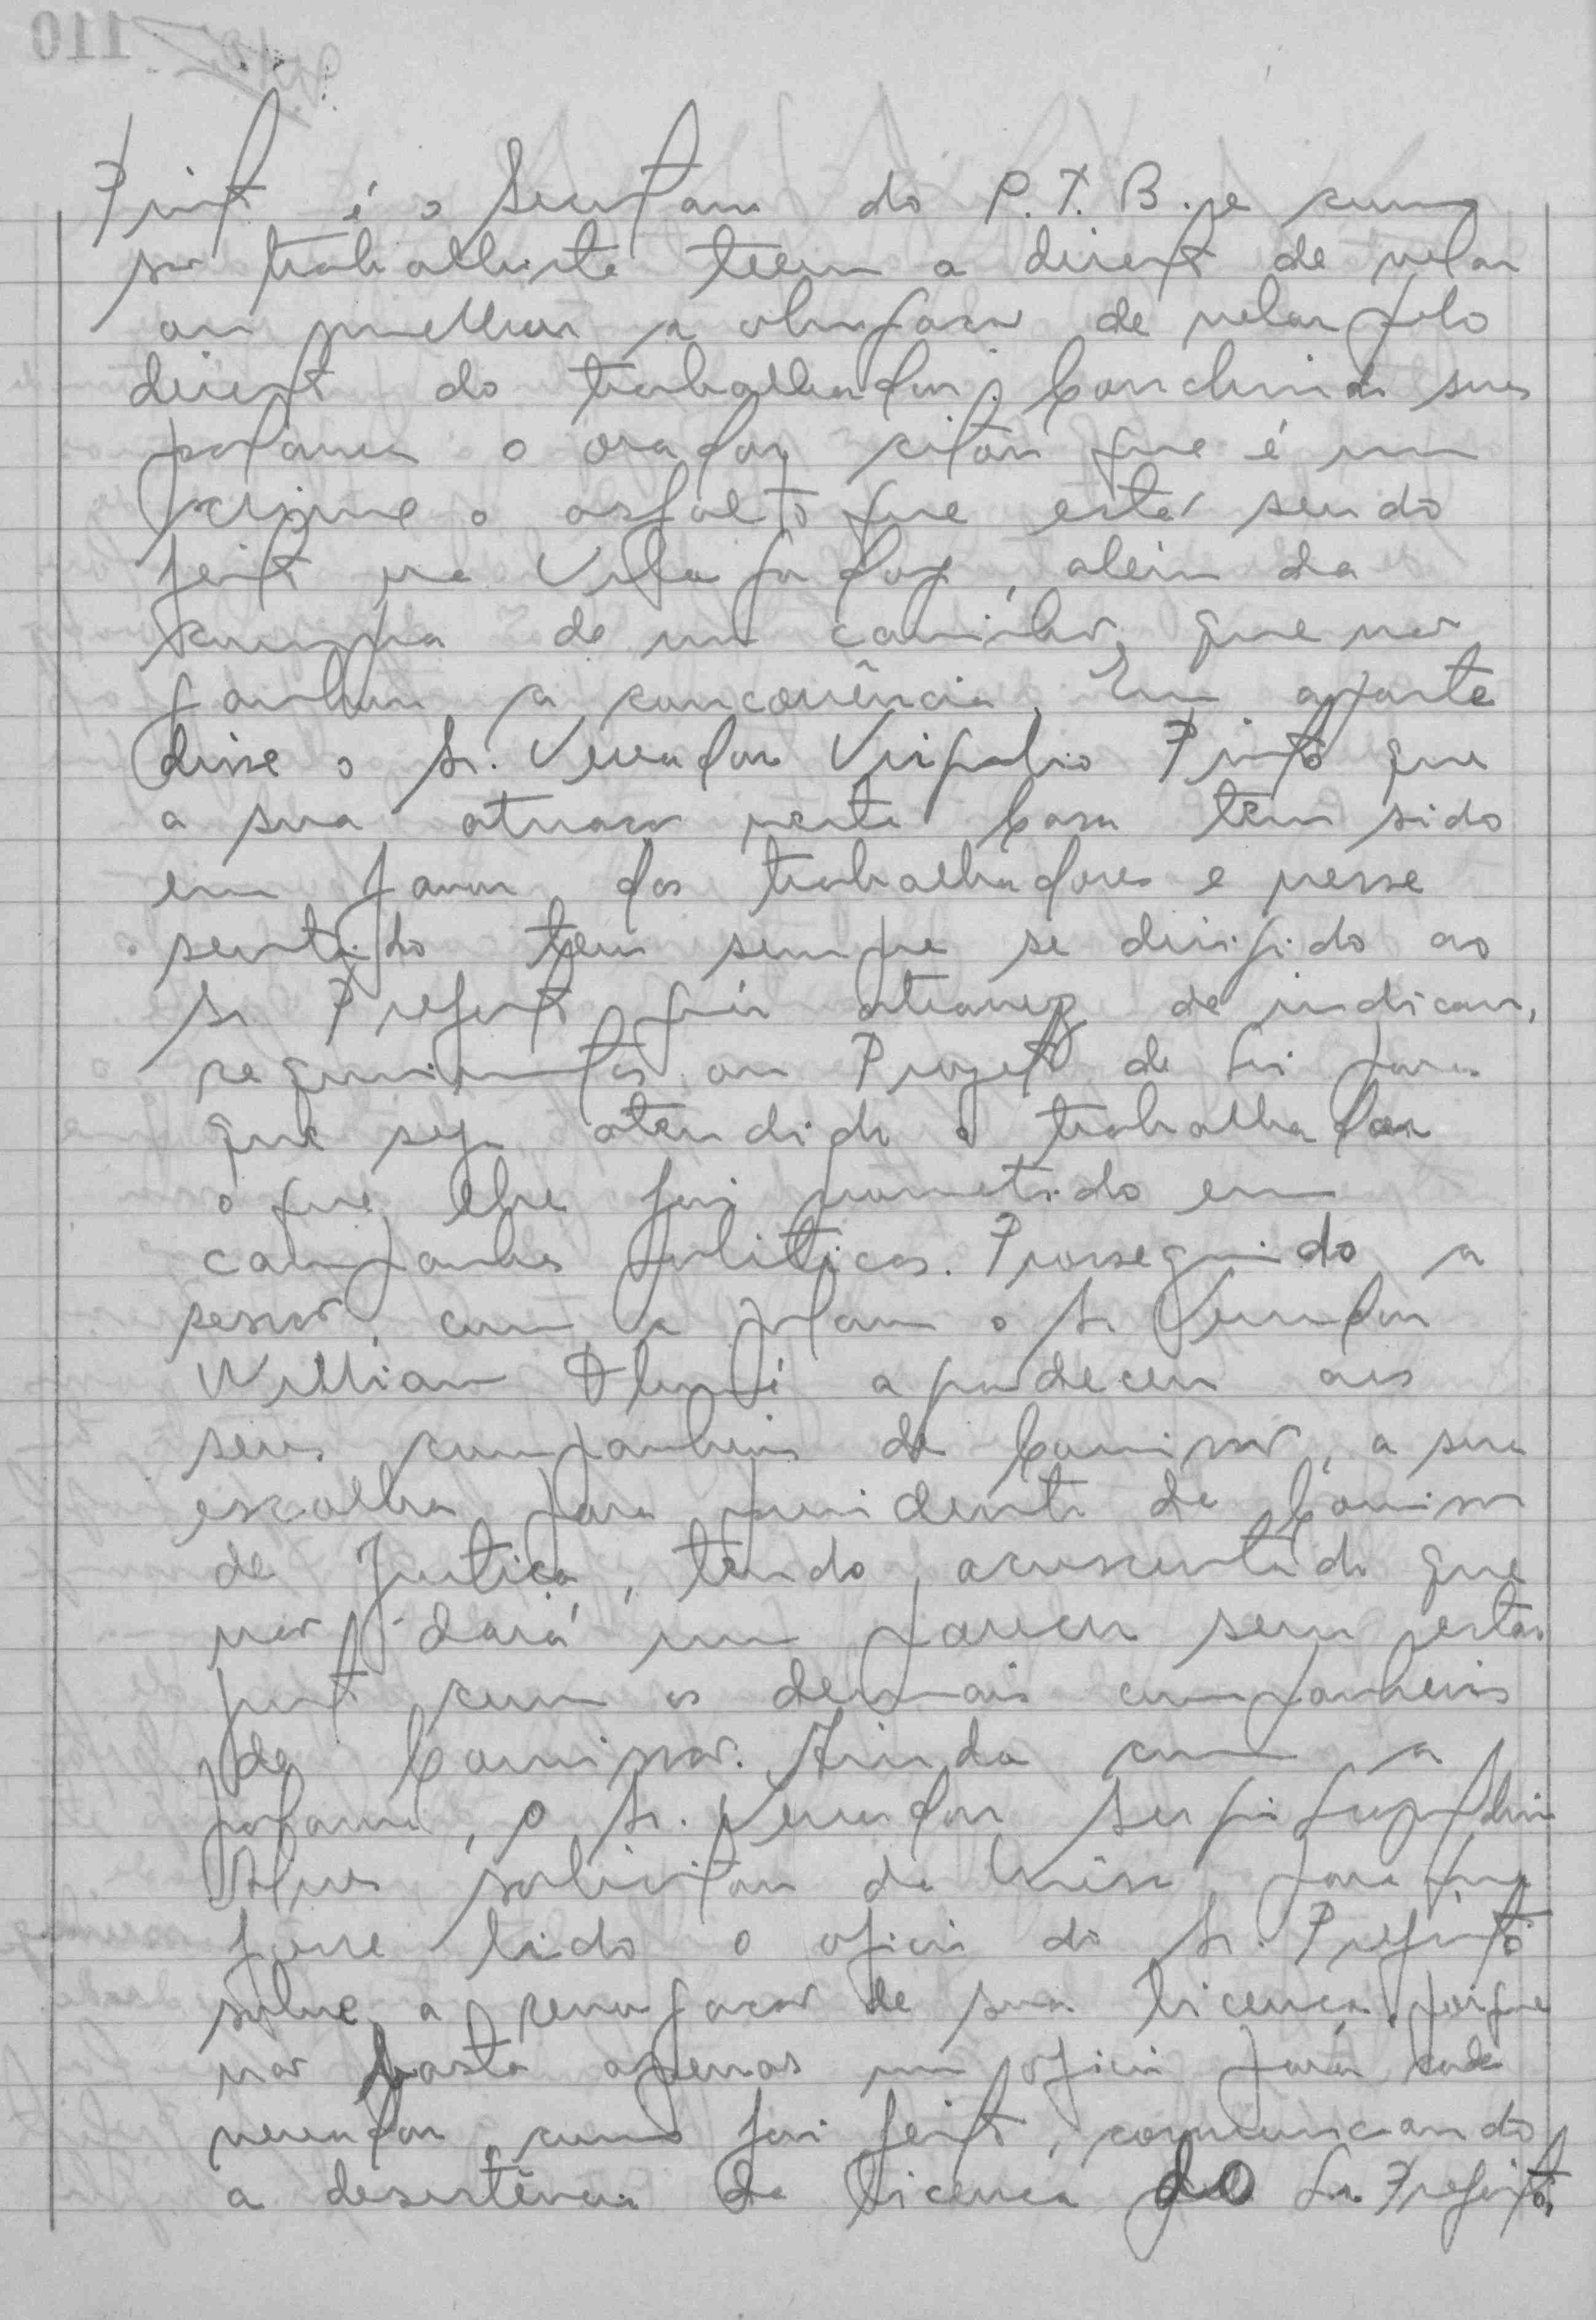 Pinto é o Secretario do P.T.B. e como
ser trabalhista tem o direito de velar
ou melhor a obrigação de velar pelo
direito do trabalhador. Concluindo suas
palavras o orador citou que é um
crime o asfalto que está sendo
feito na Vila, além da
compra de um caminhão, que não
ganhou a concorrência. Em aparte
disse o Sr. Vereador Virgulio Pinto que
a sua atuação nesta Casa tem sido
em favor dos trabalhadores e nesse
sentido tem sempre se dirigido ao
Sr. Prefeito, atravez de indicação,
requerimentos ou Projeto de Lei para
que seja atendido o trabalhador
o que lhe foi prometido em
campanhas politicas. Prosseguindo a
sessão, com a palavra o Sr. Vereador
William agradeceu aos
seus companheiros de Comissão, a sua
escolha para presidente da Comissão
de Justiça, tendo acrescentado que
não dará um parecer sem estar
junto com os demais companheiros
da Comissão. Ainda com a
palavra, o Sr. Vereador
Alves solicitou da Mesa para que
fosse lido o oficio do Sr. Prefeito
sobre a renovação de sua licença, porque
não basta apenas um oficio para cada
vereador, como foi feito, comunicando
a desistência da licença do Sr. Prefeito,
110